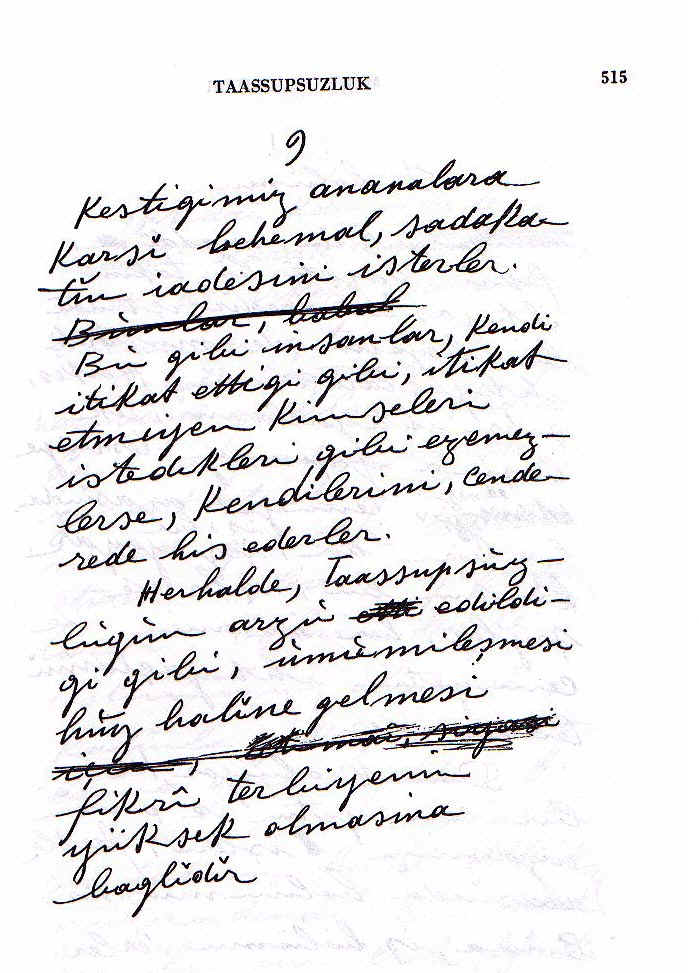 TAASSUPSUZLUK
515
9
Kestigimiz ananalara
karsi behemal, sadaka-
tin iadesini isterler.
Bunlar,
Bu gibi insanlar, kendi
itikat ettigi gibi, itikat
etmiyen kimseleri
istedikleri gibi ezemez-
lerse, kendilerini, cende-
rede his ederler.
Herhalde, Taassupsüz-
lügün arzu etti edildi-
gi gibi, ümümileşmesi
hüy haline gelmesi
için, siyasi
fikrî terbiyenin
yüksek olmasina
baglidir